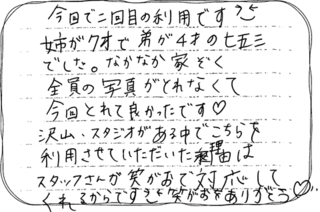 今回で二回目の利用です
姉が7才で弟が4才の七五三
でした。なかなか家ぞく
全員の写真がとれなくて
今回とれて良かったです♡
沢山、スタジオがある中でこちらを
利用させていただいた理由は
スタッフさんが笑がおで対応して
くれるからです 笑がおをありがとう♡